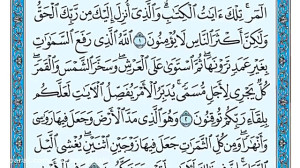 الٓمٓر ۚ تِلْكَ ءَايَٰتُ ٱلْكِتَٰبِ ۗ وَٱلَّذِىٓ أُنزِلَ إِلَيْكَ مِن رَّبِّكَ ٱلْحَقُّ
وَلَٰكِنَّ أَكْثَرَ ٱلنَّاسِ لَا يُؤْمِنُونَ ١ ٱللَّهُ ٱلَّذِى رَفَعَ ٱلسَّمَٰوَٰتِ
بِغَيْرِ عَمَدٍ تَرَوْنَهَا ۖ ثُمَّ ٱسْتَوَىٰ عَلَى ٱلْعَرْشِ ۖ وَسَخَّرَ ٱلشَّمْسَ وَٱلْقَمَرَ ۖ
كُلٌّ يَجْرِى لِأَجَلٍ مُّسَمًّى ۚ يُدَبِّرُ ٱلْأَمْرَ يُفَصِّلُ ٱلْءَايَٰتِ لَعَلَّكُم
بِلِقَآءِ رَبِّكُمْ تُوقِنُونَ ٢ وَهُوَ ٱلَّذِى مَدَّ ٱلْأَرْضَ وَجَعَلَ فِيهَا رَوَٰسِىَ
وَأَنْهَٰرًا ۖ وَمِن كُلِّ ٱلثَّمَرَٰتِ جَعَلَ فِيهَا زَوْجَيْنِ ٱثْنَيْنِ ۖ يُغْشِى ٱلَّيْلَ